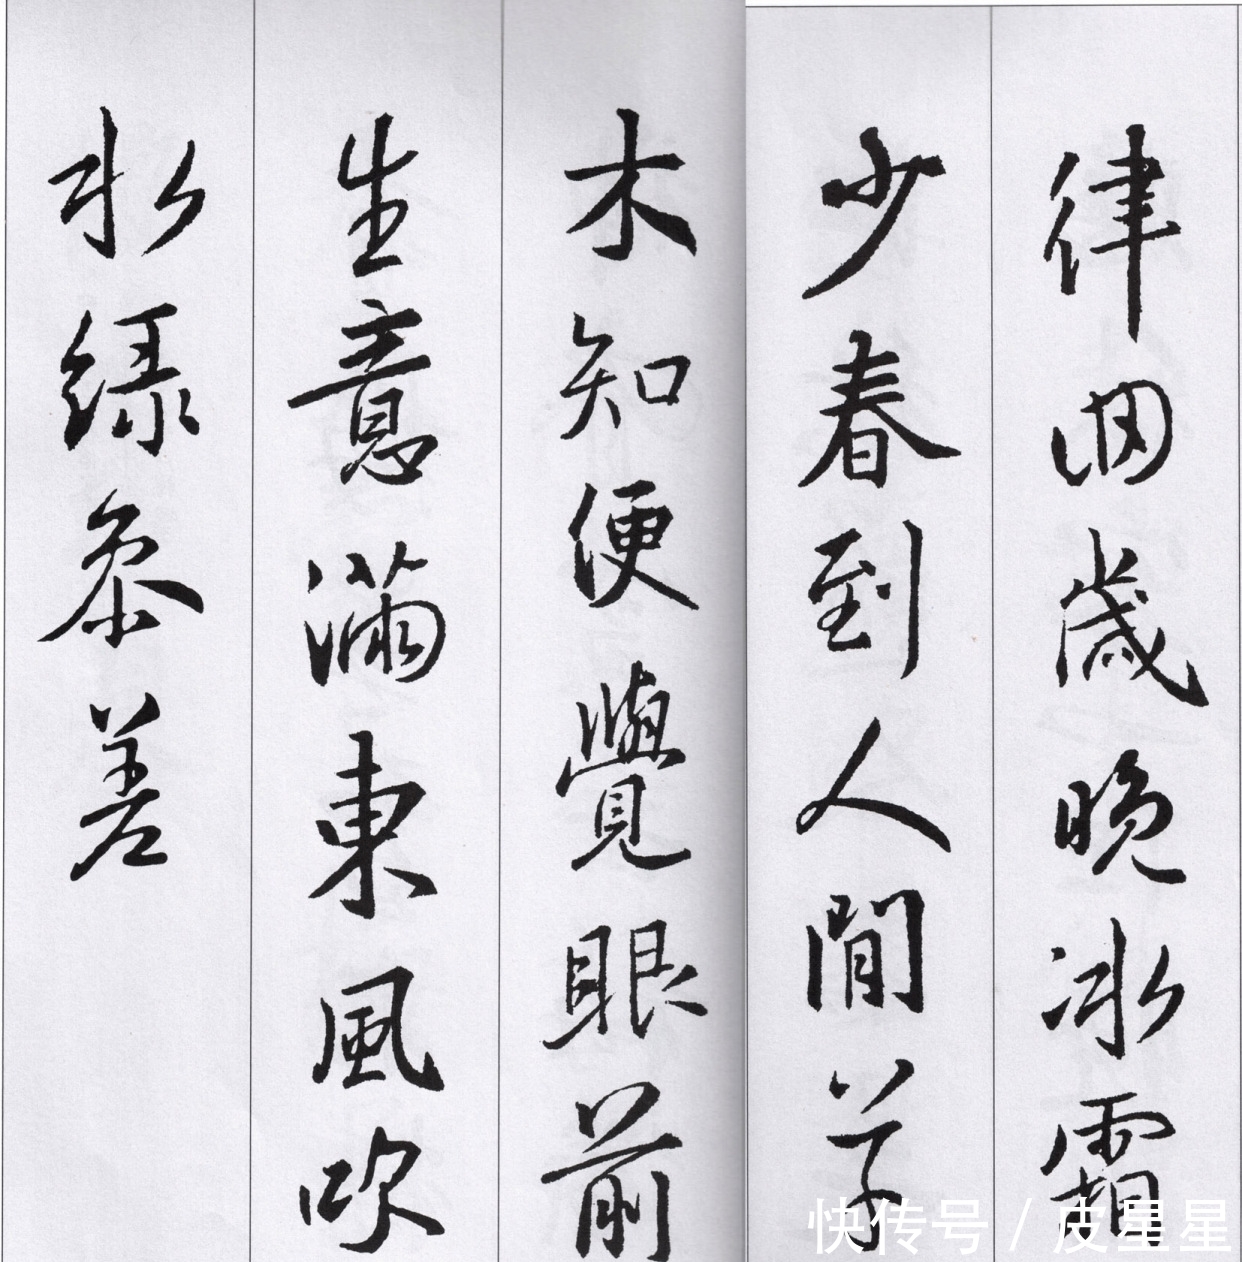 律回歲晚冰霜
少春到人間草
木知便覺眼前
生意滿東風吹
水綠參差
快传号 / 皮星星